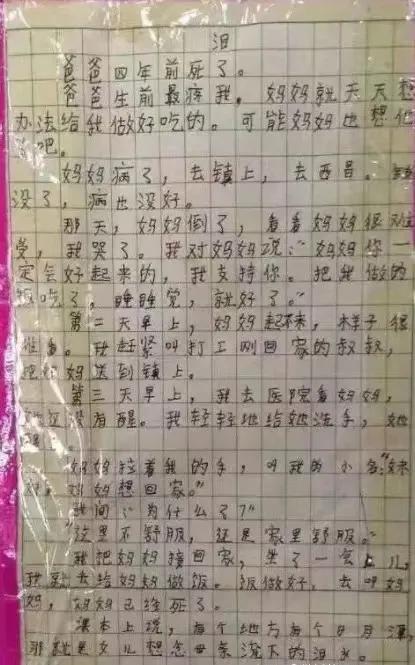 泪
爸爸四年前死了。
爸爸生前最疼我,妈妈就天天想
办法给我做好吃的。可能妈妈也想他
了吧。
妈妈病了,去镇上,去西昌。钱
没了,病也没好。
那天,妈妈倒了,看着妈妈很难
受,我哭了。我对妈妈说:“妈妈你一
定会好起来的,我支持你。把我做的
饭吃了,睡睡觉,就好了。”
第二天早上,妈妈起不来,样子很
难看。我赶紧叫打工刚回家的叔叔,
把妈妈送到镇上。
第三天早上,我去医院看妈妈,
她还没有醒。我轻轻地给她洗手,她
醒了。
妈妈拉着我的手,叫我的小名:“妹
妹,妈妈想回家。”
我问:“为什么了?”
“这里不舒服,还是家里舒服。”
我把妈妈接回家,坐了一会儿,
我就去给妈妈做饭。饭做好,去叫妈
妈,妈妈已经死了。
课本上说,有个地方有个日月潭,
那就是女儿想念母亲流下的泪水。